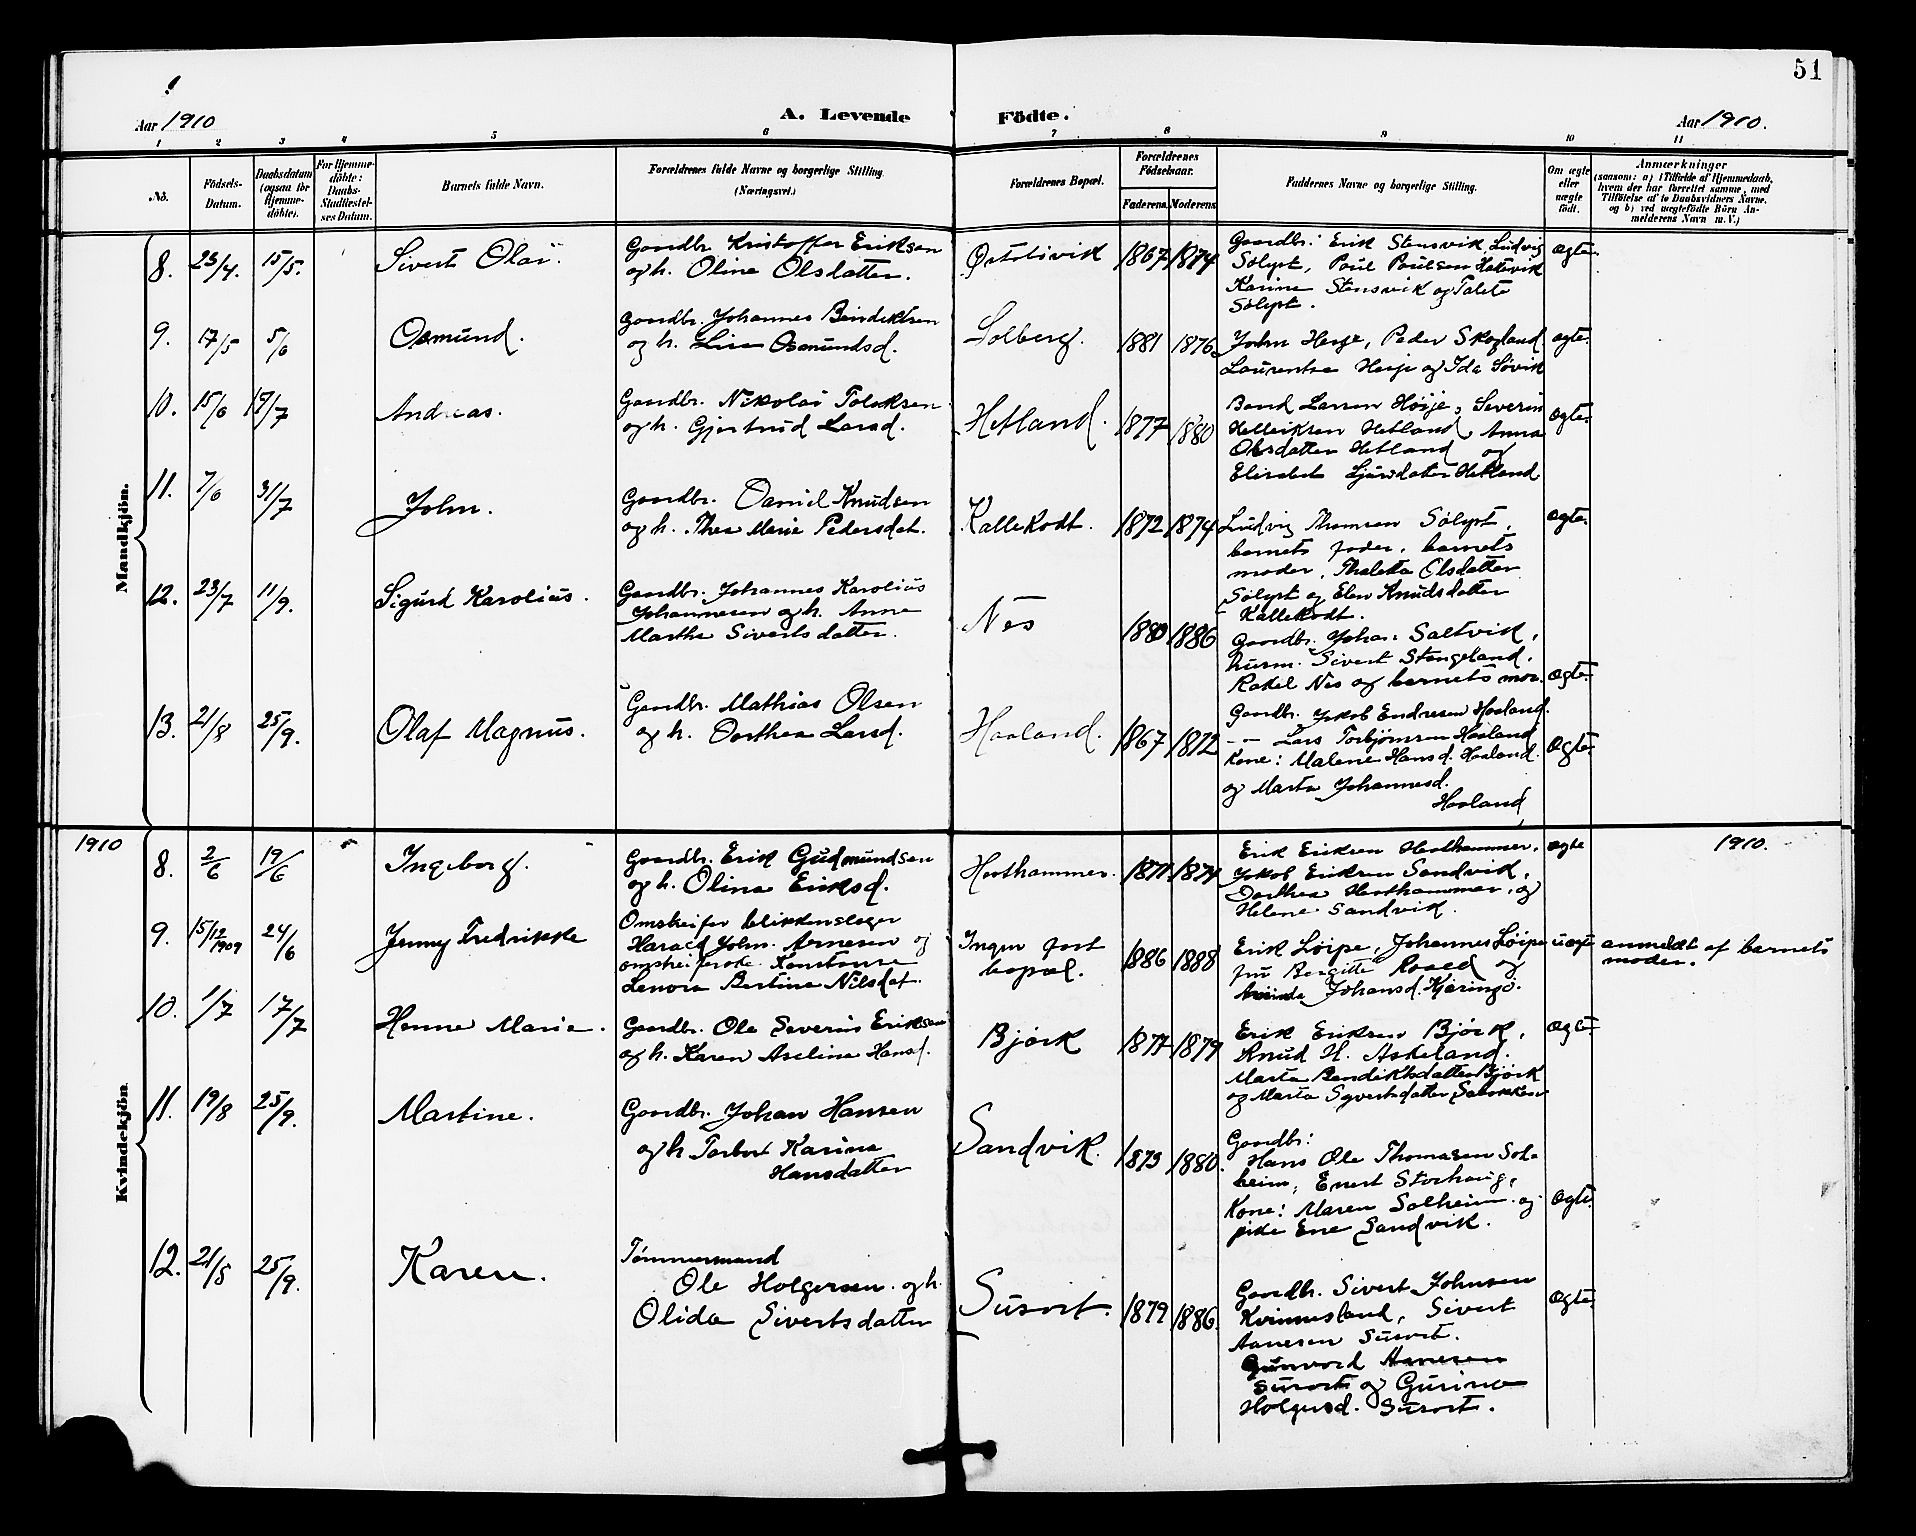 51
Aar 1910
A. Levende Födte.
Aar 1910.
1 2 3 4 5 6 7 8 9 10 11
No.
Födsels-
Datum.
Daabsdatum
(ogsaa for
Hjemme-
döbte).
For Hjemme-
döbte:
Daabs-
Stadfæstel-
ses Datum.
Barnets fulde Navn.
Forældrenes fulde Navne og borgerlige Stilling.
(Næringsvei.)
Forældrenes Bopæl.
Forældrenes
Födselsaar.
Faderens. Moderens.
Faddernes Navne og borgerlige Stilling.
Om ægte
eller
uægte
födt.
Anmærkninger
(saasom: a) i Tilfælde af Hjemmedaab,
hvem der har forrettet samme, med
Tilföielse af to Daabsvidners Navne.
og b) ved uægtefödte Börn An-
melderens Navn m. V.)
Mandkjön.
8. 23/4. 15/5. Sivert Olai
Gaardbr. Kristoffer Eriksen
og h. Oline Olsdatter.
1867 1874
Gaardbr: Erik Stensvik Ludvig
Sølyst, Poul Poulsen
Karine Stensvik og Talete
Sølyst.
Ægte.
9. 17/5 5/6 Osmund.
Gaardbr. Johannes Bendiktsen
og h. Lisa Osmundsd.
Solberg. 1881 1876
John Hesje, Peder Skogland
Laurentse Hesje og Ida Søvik
ægte.
10. 15/6 17/7 Andreas.
Gaardbr. Nikolai Tolaksen
og h. Gjertrud Larsd.
Hetland. 1877 1880
Baard Larsen Høije, Severin
Helleiksen Hetland, Anna
Olsdatter Hetland og
Elisabet Sjursdatter Hetland
Ægte.
11. 7/6 31/7 John.
Gaardbr. Daniel Knudsen
og h. Thea Marie Pedersdat.
Kallekodt. 1872 1874
Ludvig Thomsen Sølyst,
barnets fader, barnets
moder, Thaletta Olsdatter
Sølyst og Elen Knudsdatter
Kallekodt.
Ægte.
12. 23/7 11/9. Sigurd Karolius.
Gaardbr. Johannes Karolius
Johannesen og h. Anna
Martha Sivertsdatter.
Nes 1880 1886
Gaardbr. Johan Saltvik,
husm. Sivert Stangeland.
Rakel Nes og barnets mor.
Ægte.
13. 21/8 25/9. Olaf Magnus.
Gaardbr. Mathias Olsen
og h. Dorthea Larsd.
Haaland. 1867 1872
Gaardbr. Jakob Endresen Haaland.
- - Lars Torbjørnsen Haaland
Kone: Malene Hansd. Haaland.
og Marta Johannesd.
Haaland
Ægte.
1910
Kvindekjön
8. 2/6 19/6 Ingeborg.
Gaardbr. Erik Gudmundsen
og h. Olina Eriksd.
1871 1874
Erik Eriksen
Jakob Eriksen Sandvik,
Dorthea og
Helene Sandvik.
ægte
1910.
9. 15/12 1909 24/6 Jenny Fredrikke
Omstreifer blikkenslager
Harald John. Arnesen og
omstreiferske Konstanse
Lenora Bertine Nilsdat.
Ingen fast
bopæl.
1886 1888
Erik Løipe, Johannes Løipe
fru Bergitte Roald og
Johansd. Kjeringø.
uægte
anmeldt af barnets
moder.
10. 1/7 17/7 Hanna Marie.
Gaardbr. Ole Severin Eriksen
og h. Karen Aseline Hansd.
Bjørk 1877 1879
Erik Eriksen Bjørk,
Knud H. Askeland.
Marta Bendiktsdatter Bjørk
og Marta Syvertsdatter
Ægte
11. 19/8 25/9. Martine.
Gaardbr. Johan Hansen
og h Torbor Karina
Hansdatter
Sandvik. 1873 1880.
Gaardbr:
Hans Ole Thomasen Sol-
heim, Enert Storhaug,
Kone: Maren Solheim og
pike Ene Sandvik.
Ægte.
12. 21/8 25/9. Karen.
Tømmermand
Ole Holgersen og h.
Olida Sivertsdatter
Susort. 1879 1886.
Gaardbr. Sivert Johnsen
Kvinnesland, Sivert
Aanesen Susort.
Gunvord Aanesen
Susort og Gurine
Holgersd. Susort.
Ægte.